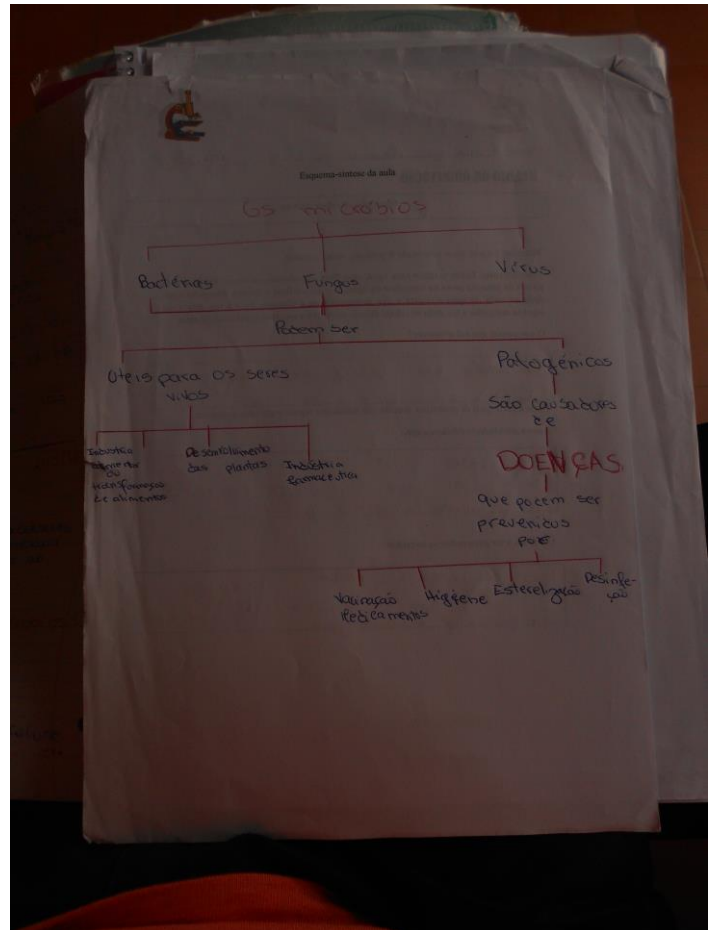 Esquema-síntese da aula
Os micróbios
Bactérias Fungos Vírus
Podem ser
Úteis para os seres
vivos
Patogénicos
São causadores
de
DOENÇAS
que podem ser
prevenidas
por
Indústria
ou
transformação
de alimentos
Desenvolvimento
das plantas
Indústria
farmaceutica
Vacinação
Medicamentos
Higiene
Esterelização
Desinfe-
ção